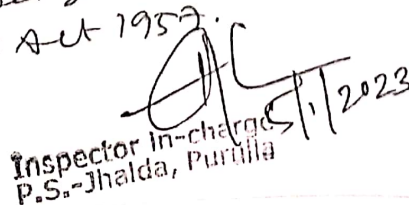 Act 1957.
5/1/2023
Inspector in-charge
P.S.-Jhalda, Purulia